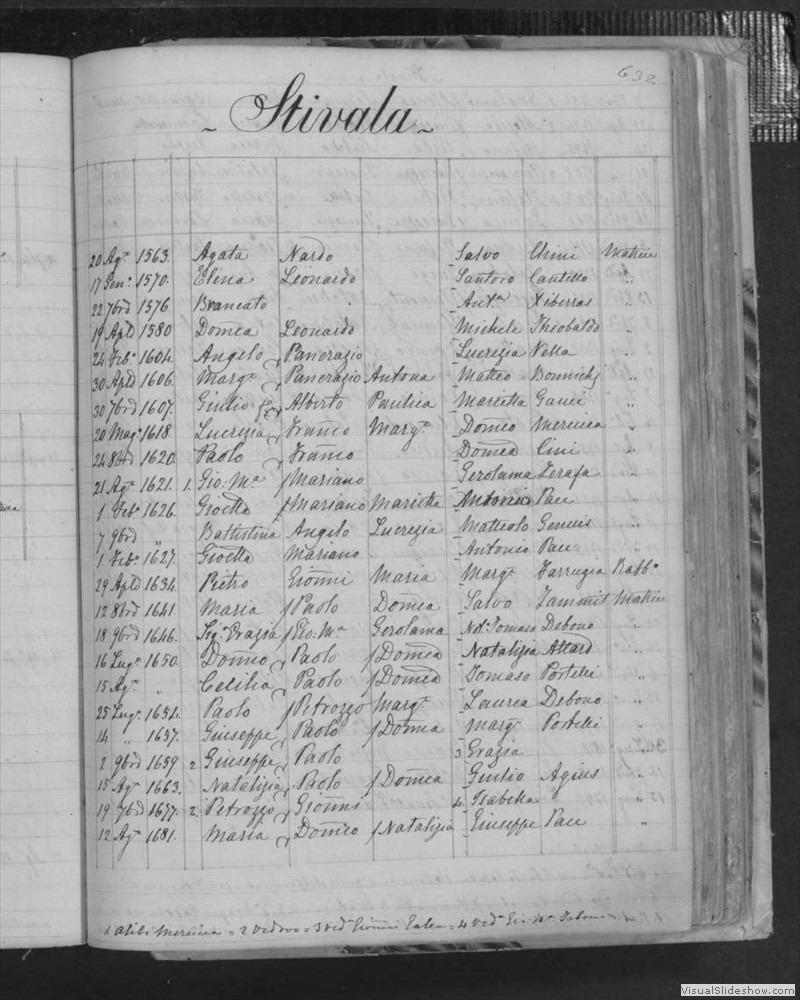 632
Stivala
20 Agº 1563. Agata Nardo Salvo Chini Matrice
17 Genº 1570. Elena Leonardo Santoro Cantello "
22 7bre 1576 Brancato Antª Xiberras "
19 Aple 1580 Domca Leonardo Michele Theobaldo "
24 Febº 1604. Angelo Pancrazio Lucrezia Vella "
30 Aple 1606. Margª Pancrazio Antona Matteo "
30 7bre 1607. Giulio Alberto Paulica Marietta Gauci "
20 Magº 1618. Lucrezia Franco Margª Domco Mercieca "
24 8bre 1620. Paolo Franco Domca Cini "
21 Agº 1621. 1. Gio: Mª Mariano Gerolama Zerafa "
1 Febº 1626. Gioetta Mariano Marietta Antonio Pace "
7 9bre " Battistina Angelo Lucrezia Matteolo "
1 Febº 1627. Gioetta Mariano Antonio Pace "
29 Aple 1634 Pietro Gionni Maria Margª Farrugia Rabbº
12 8bre 1641. Maria Paolo Domca Salvo Zammit Matrice
18 9bre 1646. Sigª Grazia Gio: Mª Gerolama Nd: Tomaso Debono "
16 Lugº 1650. Domco Paolo Domca Natalizia Attard "
15 Agº " Cecilia Paolo Domca Tomaso Portelli "
25 Lugº 1654. Paolo Petrozzo Margª Laurea Debono "
14 " 1657. Giuseppe Paolo Domca Margª Portelli "
2 9bre 1659 2 Giuseppe Paolo 3 Grazia "
15 Agº 1663. Natalizia Paolo Domca Giulio Agius "
19 7bre 1677. 2. Petrozzo Gionni 4 Isabella "
12 Agº 1681. Maria Domco Natalizia Giuseppe Pace "
1 alibi Mercieca = 2 vedovo = 3 vedª Gionni = 4 vedª Gio: Mª
VisualSlideshow.com